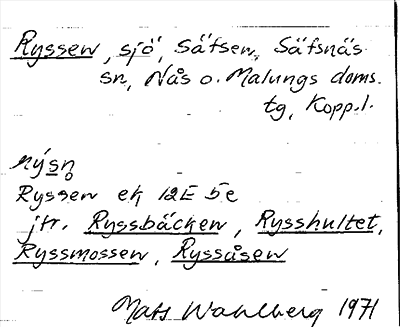 Ryssen, sjö, Säfsen, Säfsnäs
sn, Nås o. Malungs doms.
tg, Kopp.l.
rýsn̥
Ryssen ek 12E 5e
jfr. Ryssbäcken, Rysshultet,
Ryssmossen, Ryssåsen
Mats Wahlberg 1971